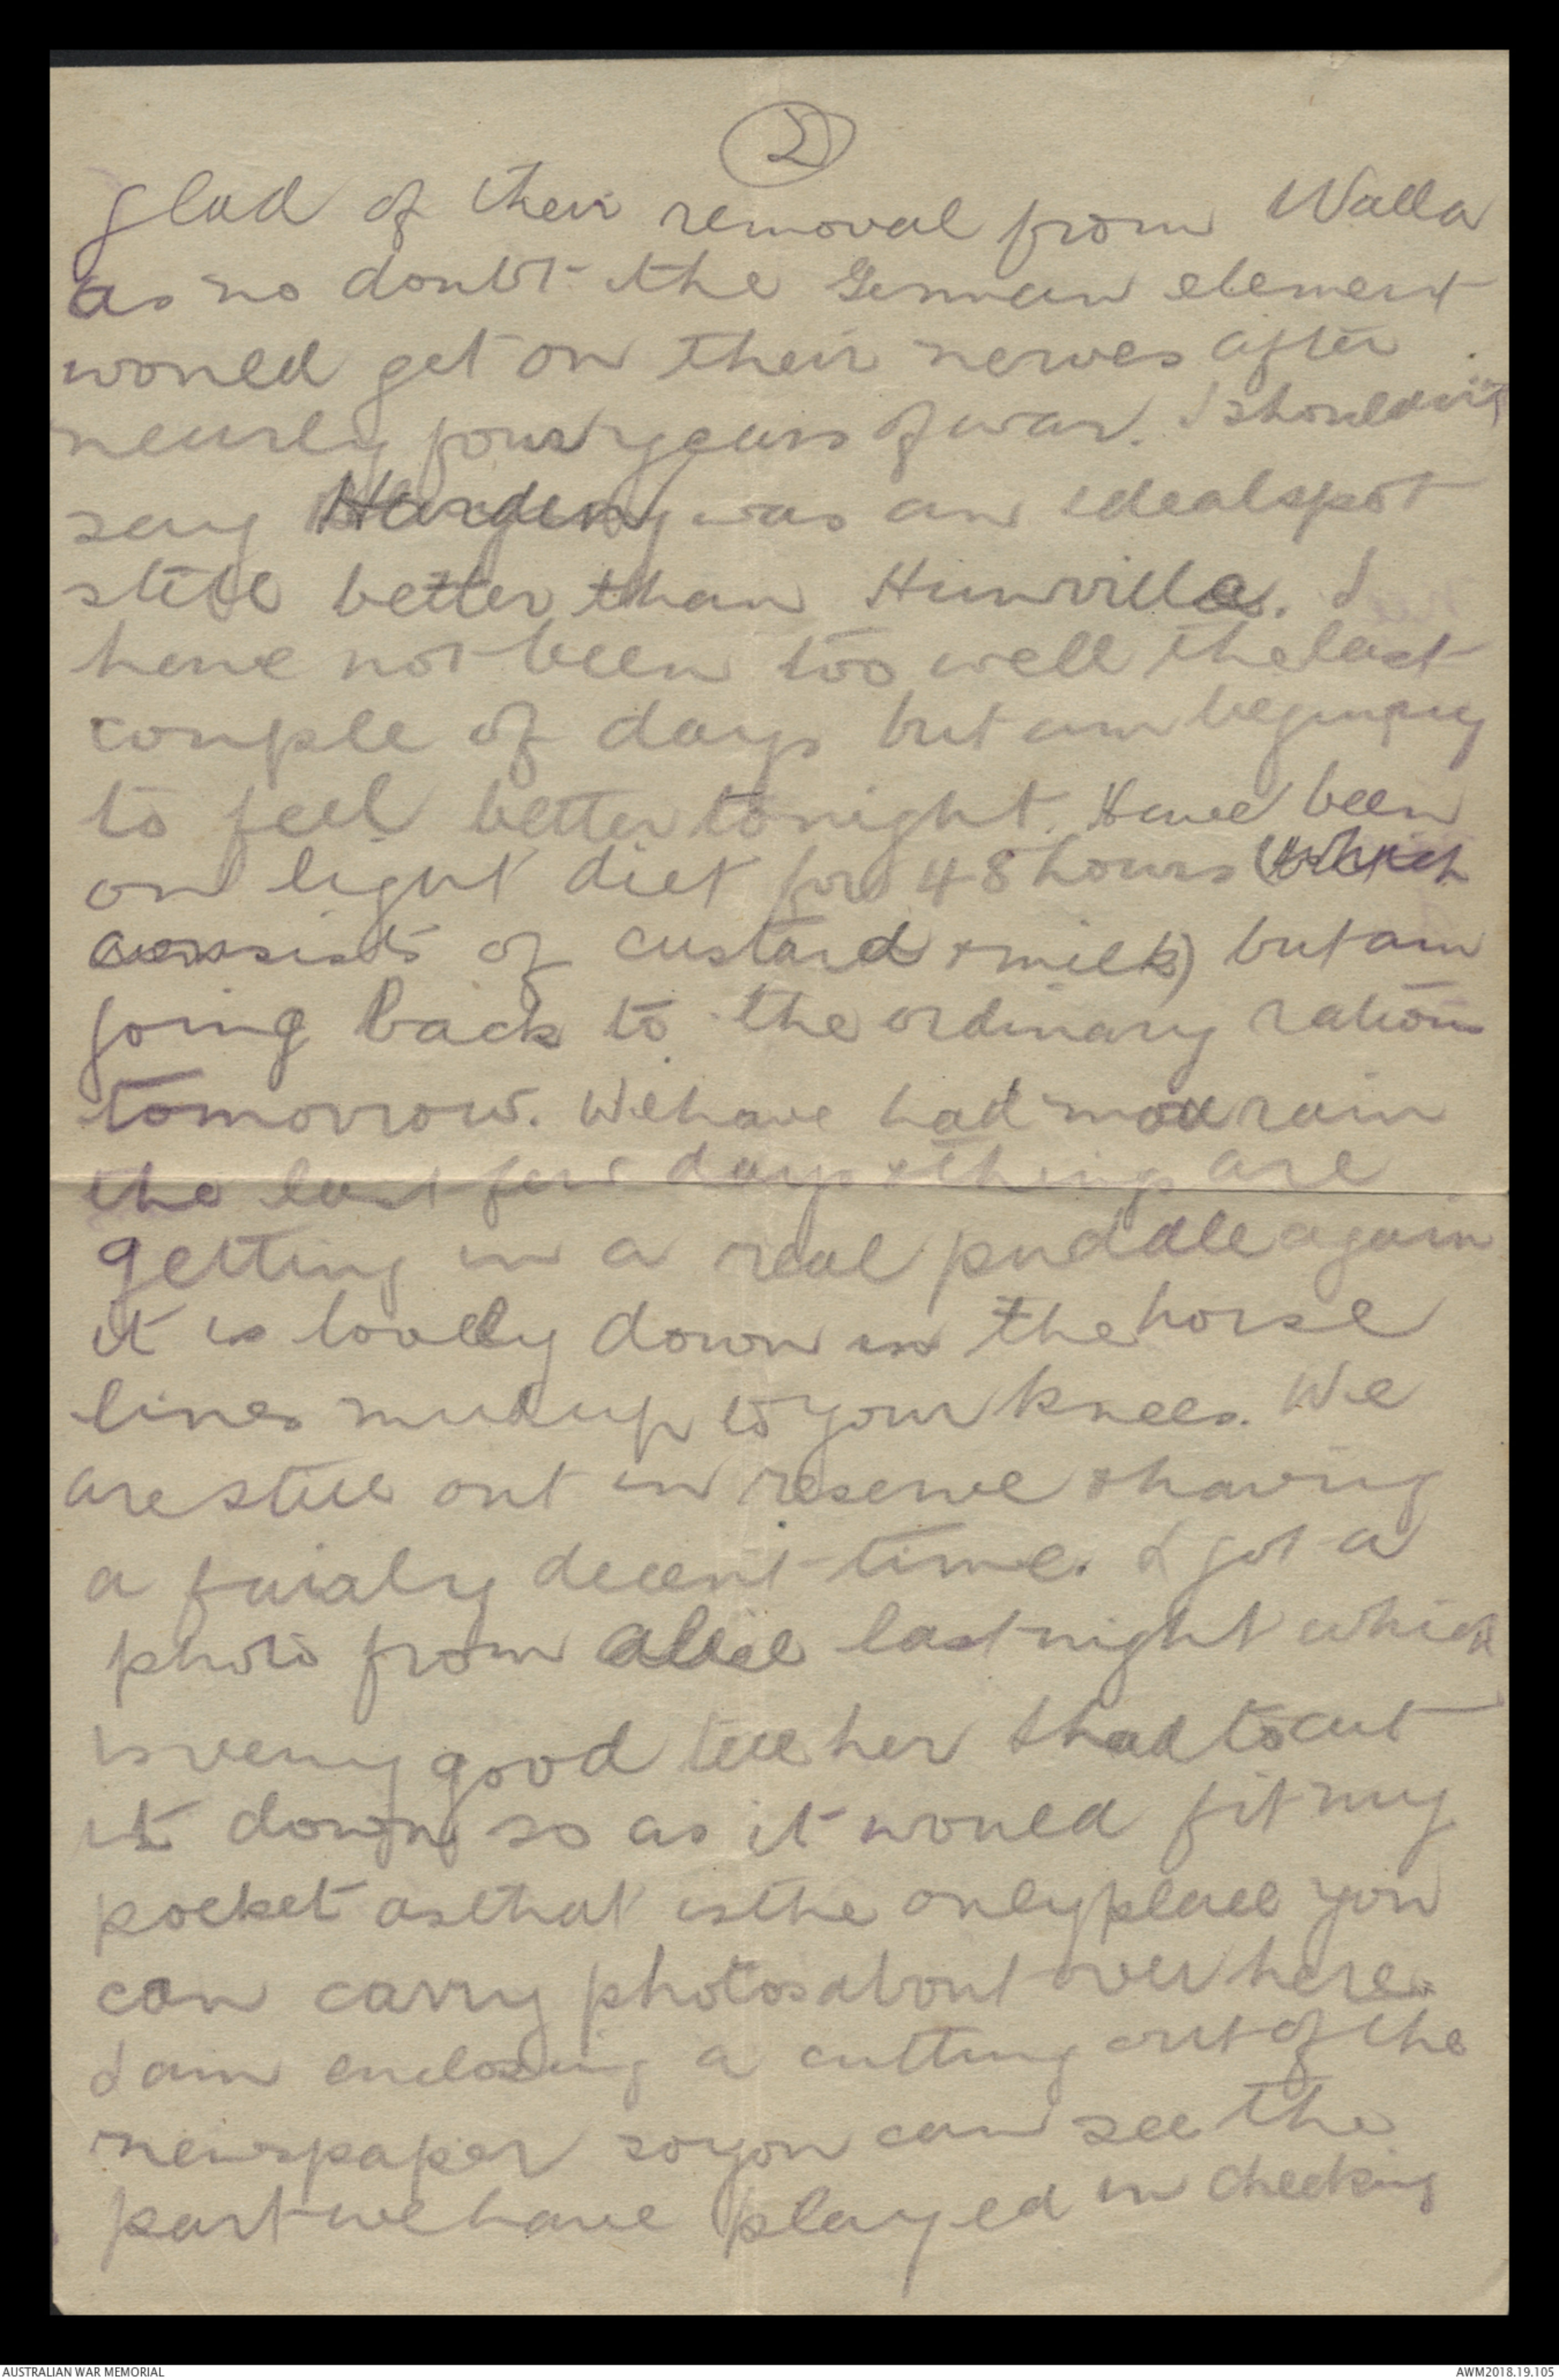 2
glad of their removal from Walla
as no doubt the German element
would get on their nerves after
nearly four years of war. I shouldn't
say was an ideal spot
still better than Hunville. I
have not been too well the last
couple of days but am beginning
to feel better tonight. Have been
on light diet for 48 hours (which
consists of custard & milk) but am
going back to the ordinary rations
tomorrow. We have had more rain
the last few days & things are
getting in a real puddle again
it is lovely down in the horse
lines mud up to your knees. We
are still out in reserve & having
a fairly decent time. I got a
photo from Alice last night which
is very good tell her I had to cut
it down so as it would fit my
pocket as that is the only place you
can carry photos about over here.
I am enclosing a cutting out of the
newspaper so you can see the
part we have played in checking
AUSTRALIAN WAR MEMORIAL
AWM2018.19.105